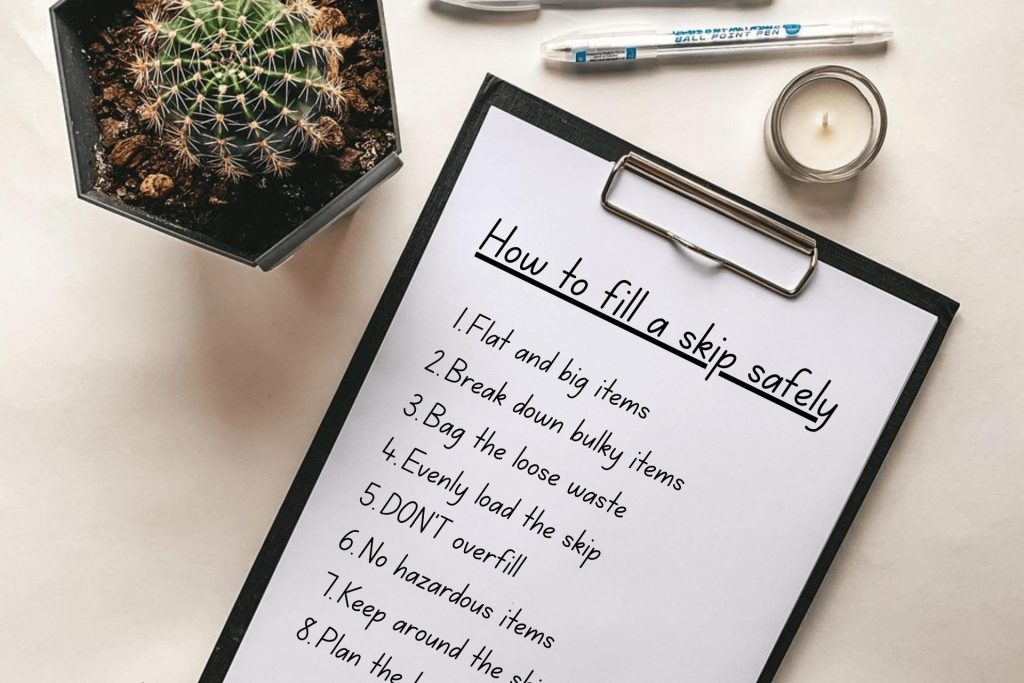 BALL POINT PEN
How to fill a skip safely
1. Flat and big items
2. Break down bulky items
3. Bag the loose waste
4. Evenly load the skip
5. DON'T overfill
6. No hazardous items
7. Keep around the
8. Plan the